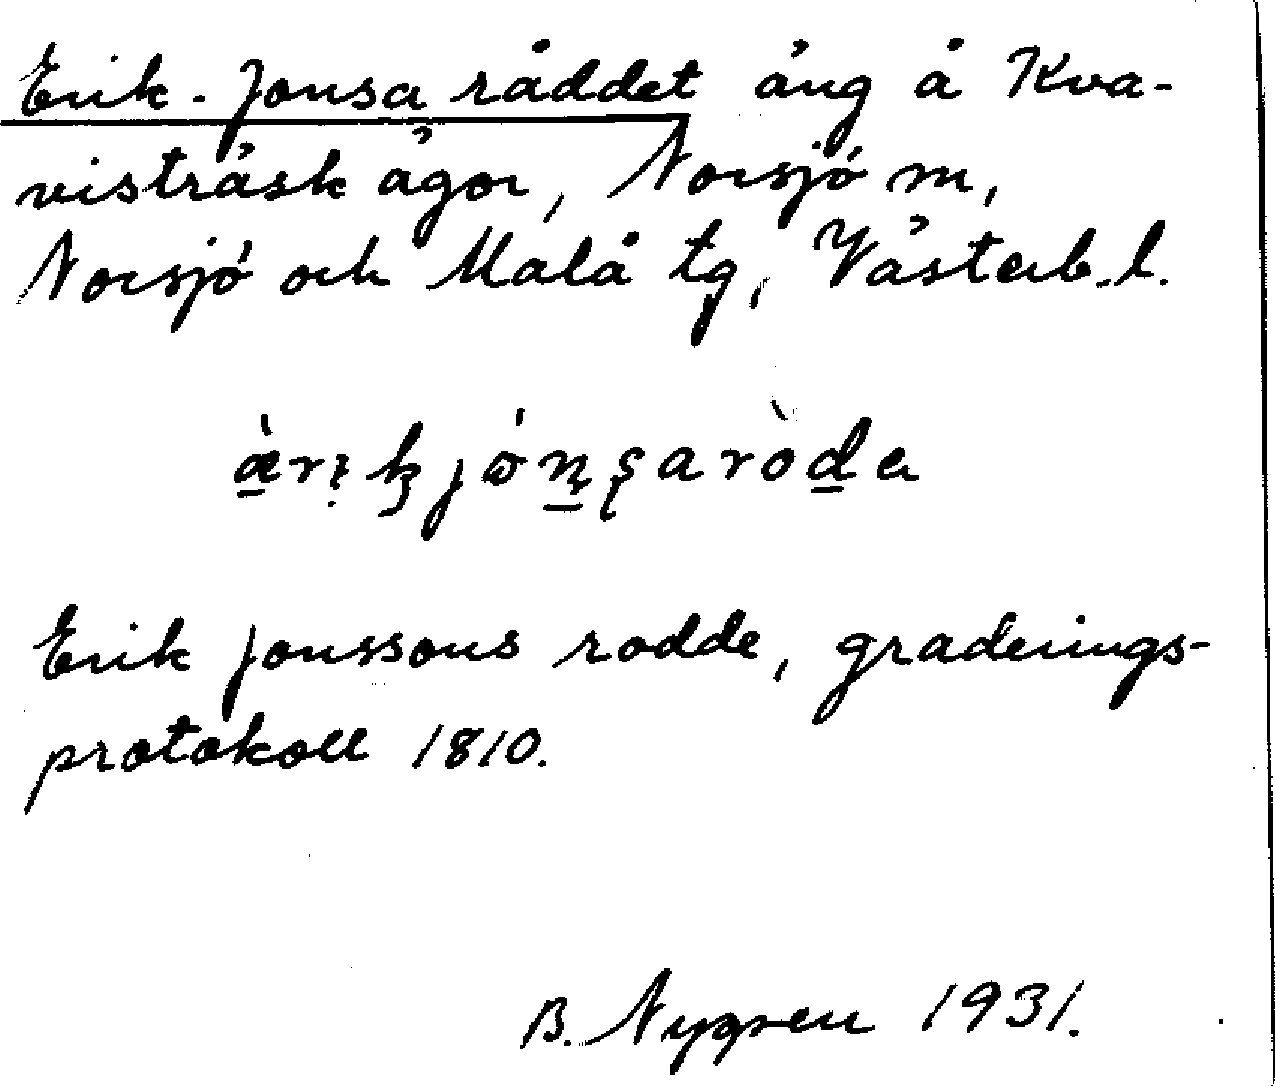 Erik-Jonsa råddet äng å Kva-
visträsk ägor, Norsjö sn,
Norsjö och Malå tg, Västerb. l.
Erik Jonssons rodde, graderings-
protokoll 1810.
B. Nygren 1931.